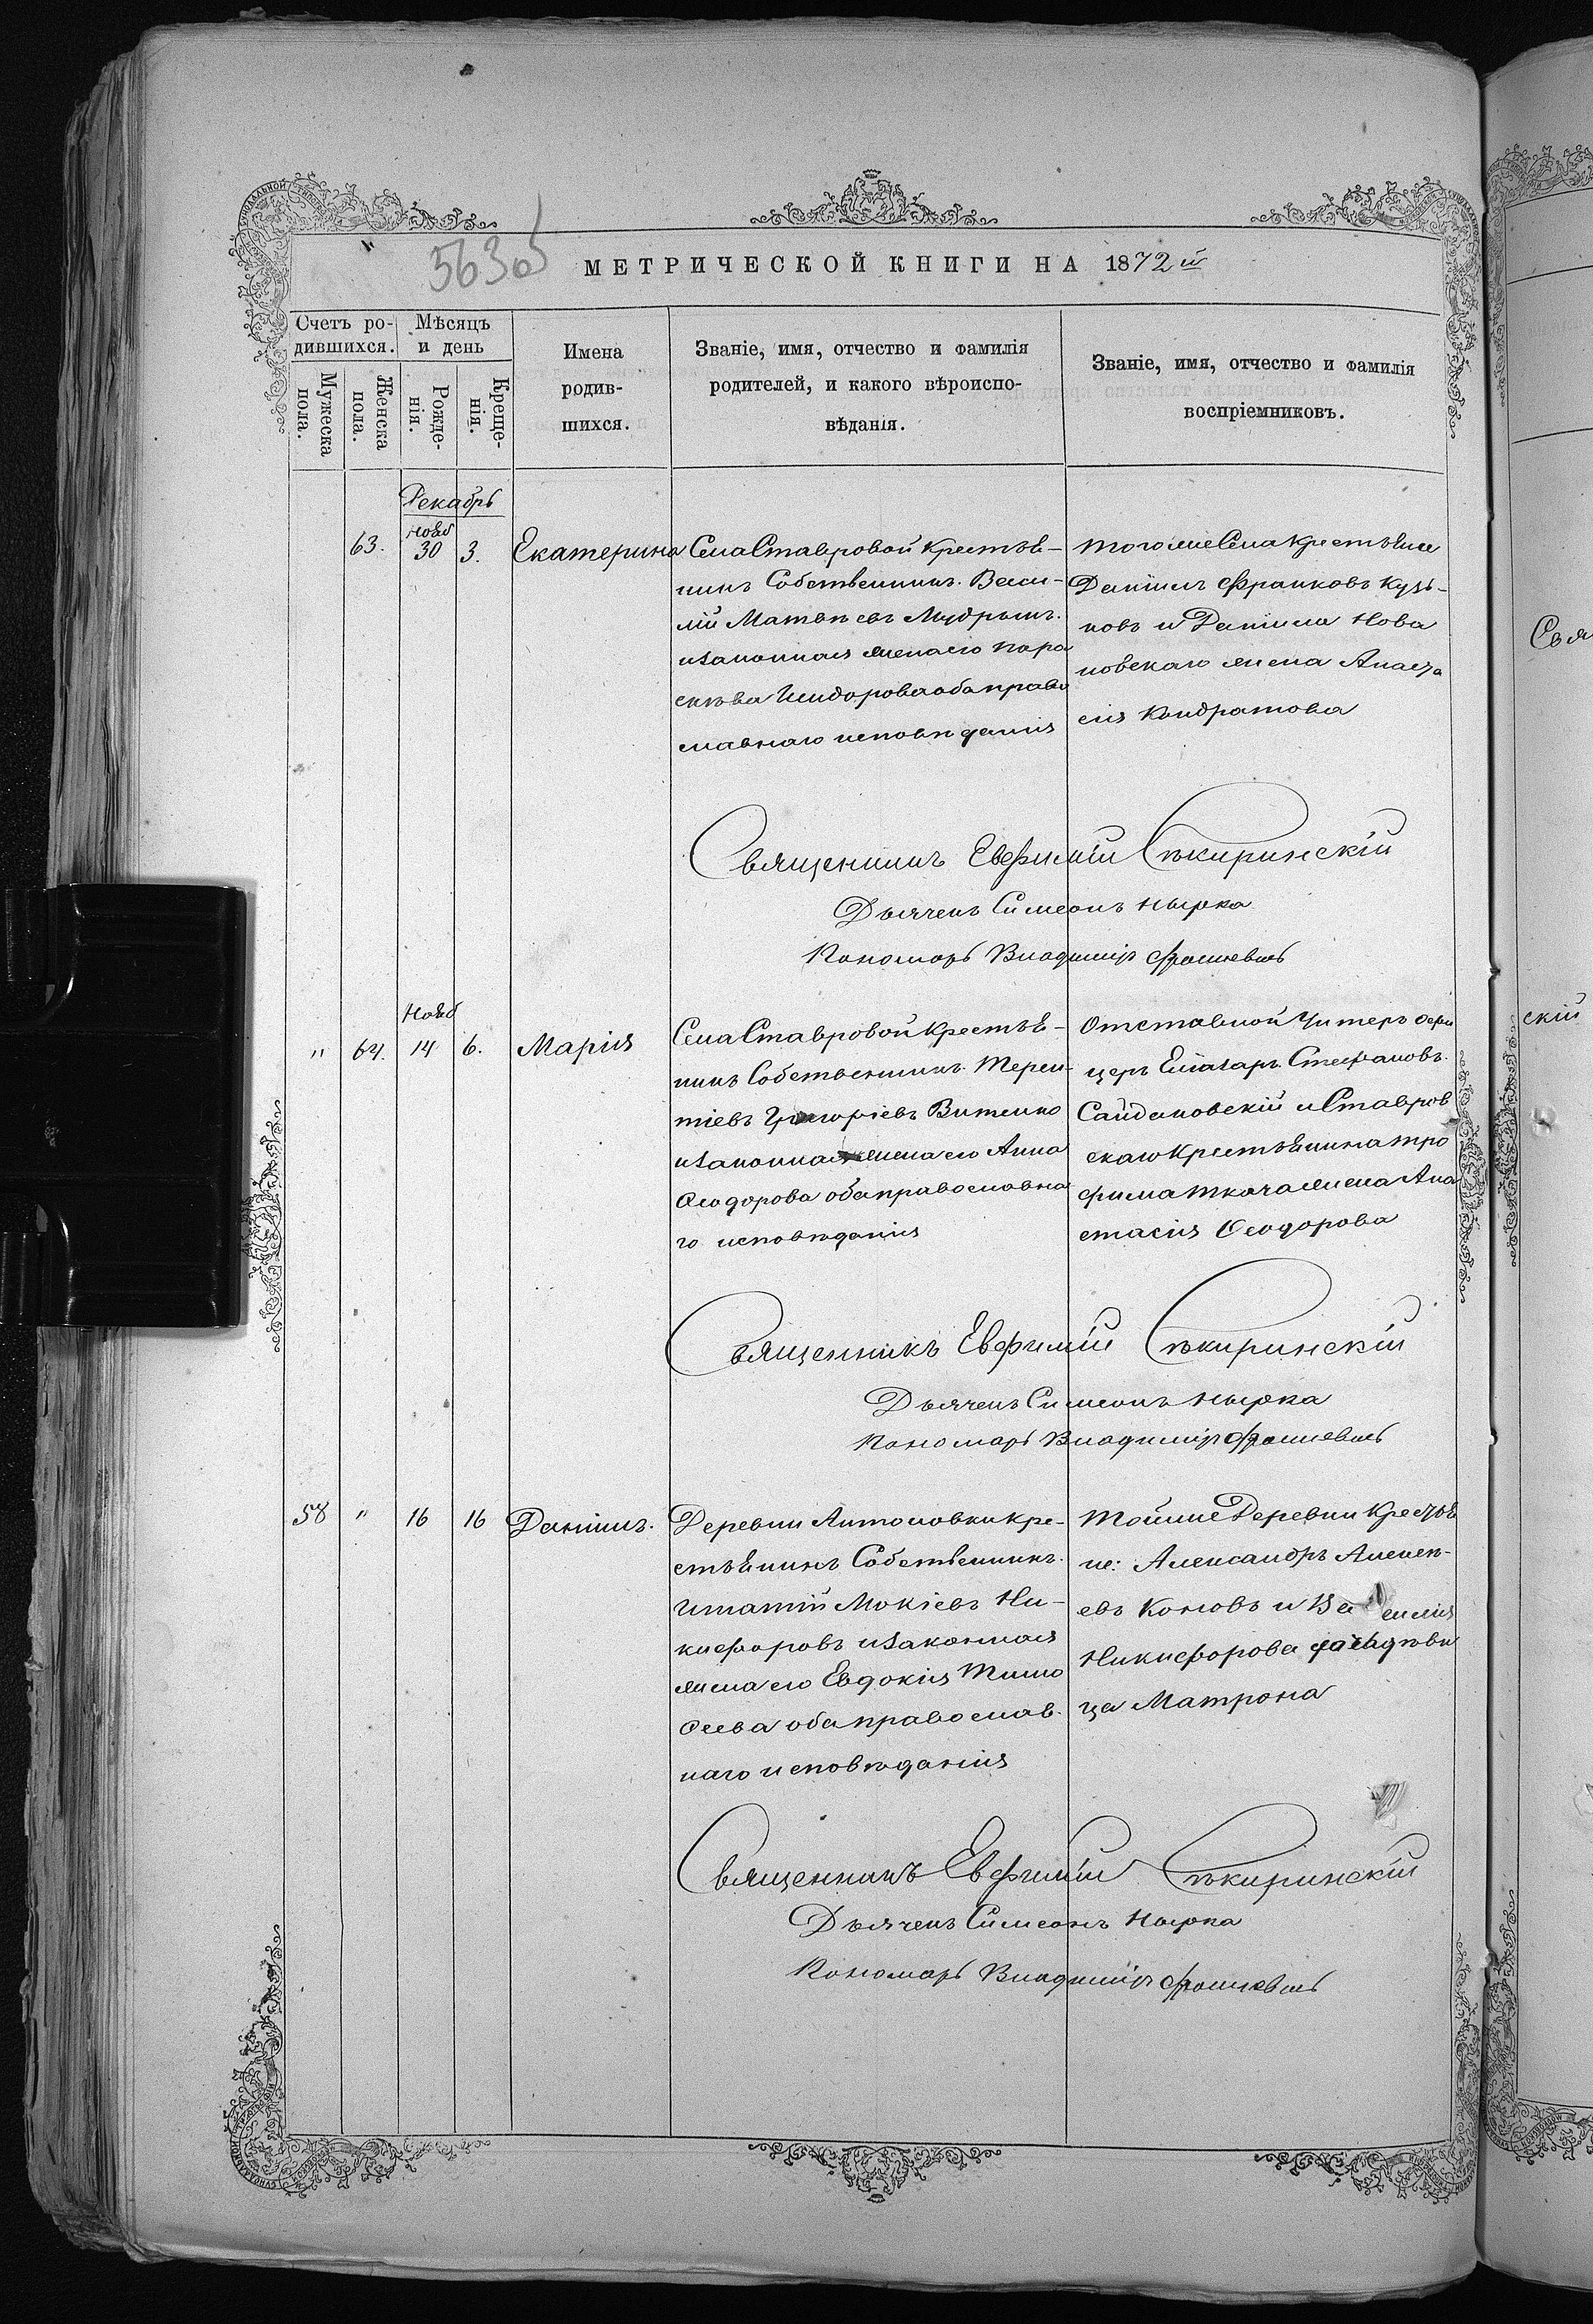 563об
МЕТРИЧЕСКОЙ КНИГИ НА 1872й
Счетъ ро-
дившихся.
Мѣсяцъ
и день
Мужеска
пола.
Женска
пола.
Рожде-
нія.
Креще-
нія.
Имена
родив-
шихся.
Званіе, имя, отчество и фамилія
родителей, и какого вѣроиспо-
вѣданія.
Званіе, имя, отчество и фамилія
воспріемниковъ.
Декабрь
63. Нояб 30 3. Екатерина
Села Ставровой крестья-
нинъ Собственникъ Васи-
лій Матвѣевъ Мудрыкъ
и законная жена его Пара
скева Исидорова оба право
славнаго исповѣданія
Того же Села крестьяне
Даніилъ Франковъ Кузь-
ковъ и Даніила Нова
новскаго жена Анаста
сія Кондратова
Священникъ Евфимій Сѣкиринскій
Дьячекъ Симеонъ Нырка
Пономарь Владиміръ
Нояб
" 64. 14 6. Марія
Села Ставровой крестья-
нинъ Собственникъ Терен-
тіевъ Григоріевъ Витенко
и законная жена его Анна
Ѳеодорова оба православна
го исповѣданія
Отставной Унтеръ офи
церъ Еліазаръ Стефановъ
Сайдаковскій и Ставров
скаго крестьянина Тро
фима Ткача жена Ана
стасія Ѳеодорова
Священникъ Евфимій Сѣкиринскій
Дьячекъ Симеонъ Нырка
Пономарь Владиміръ
58 " 16 16 Даніилъ.
Деревни Антоновки кре-
стьянинъ Собственникъ
Игнатій Мокіевъ Ни-
кифоровъ и законная
жена его Евдокія Тимо
ѳеева оба православ-
наго исповѣданія
Той же Деревни крестья
не: Александръ Алексѣ-
евъ Коновъ и Ва силія
Никифорова дочь дѣви
ца Матрона
Священникъ Евфимій Сѣкиринскій
Дьячекъ Симеонъ Нырка
Пономарь Владиміръ
Свя
скій